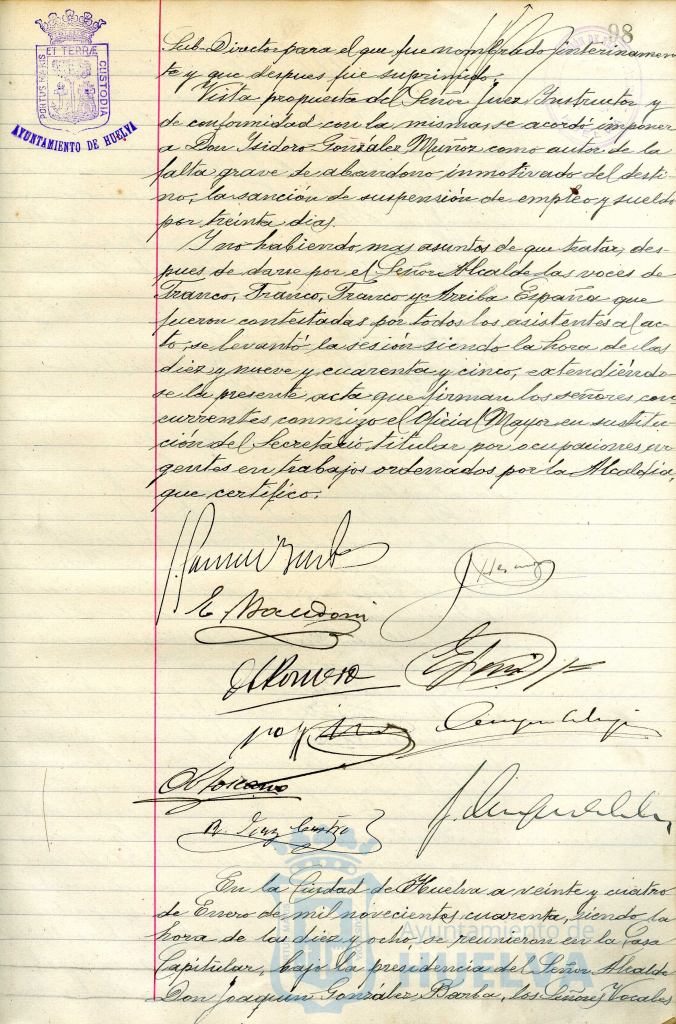 98
PORTUS MARIS ET TERRÆ CUSTODIA
AYUNTAMIENTO DE HUELVA
Sub-Director para el que fue nombrado interinamen-
te y que despues fue suprimido.
Vista propuesta del Señor Juez Instructor y
de conformidad con la misma, se acordó imponer
a Don Isidoro González Muñoz como autor de la
falta grave de abandono inmotivado del desti-
no, la sanción de suspensión de empleo y sueldo
por treinta dias.
Y no habiendo mas asuntos de que tratar, des-
pues de darse por el Señor Alcalde las voces de
Franco, Franco, Franco y Arriba España que
fueron contestadas por todos los asistentes al ac-
to, se levantó la sesión siendo la hora de las
diez y nueve y cuarenta y cinco, extendiéndo-
se la presente acta que firman los señores con-
currentes conmigo el Oficial Mayor en sustitu-
ción del Secretario titular por ocupaciones ur-
gentes en trabajos ordenados por la Alcaldia,
que certifico.
E. Mandoni
Romero
Toscano
R. Diaz Castro
En la Ciudad de Huelva a veinte y cuatro
de Enero de mil novecientos cuarenta, siendo la
hora de las diez y ocho, se reunieron en la Casa
Capitular, bajo la presidencia del Señor Alcalde
Don Joaquin González Barba, los Señores Vocales
Ayuntamiento de
HUELVA